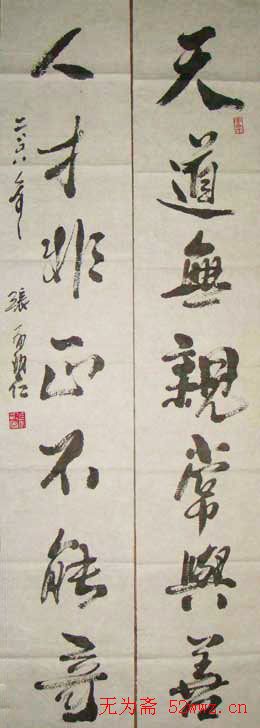 天道無親常與善
人才非正不能奇
二〇〇八年
張 仁
无为斋 52wwz.cn